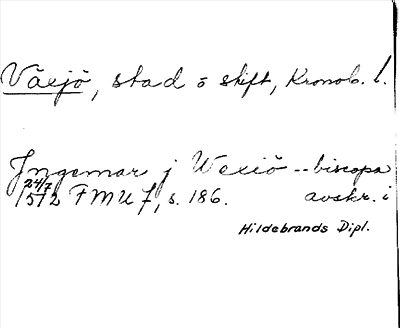 Växjö, stad o stift, Kronob. l.
Jngemar j Wexiö -- biscopa
24/7 1512 FMU 7, s. 186. avskr. i
Hildebrands Dipl.